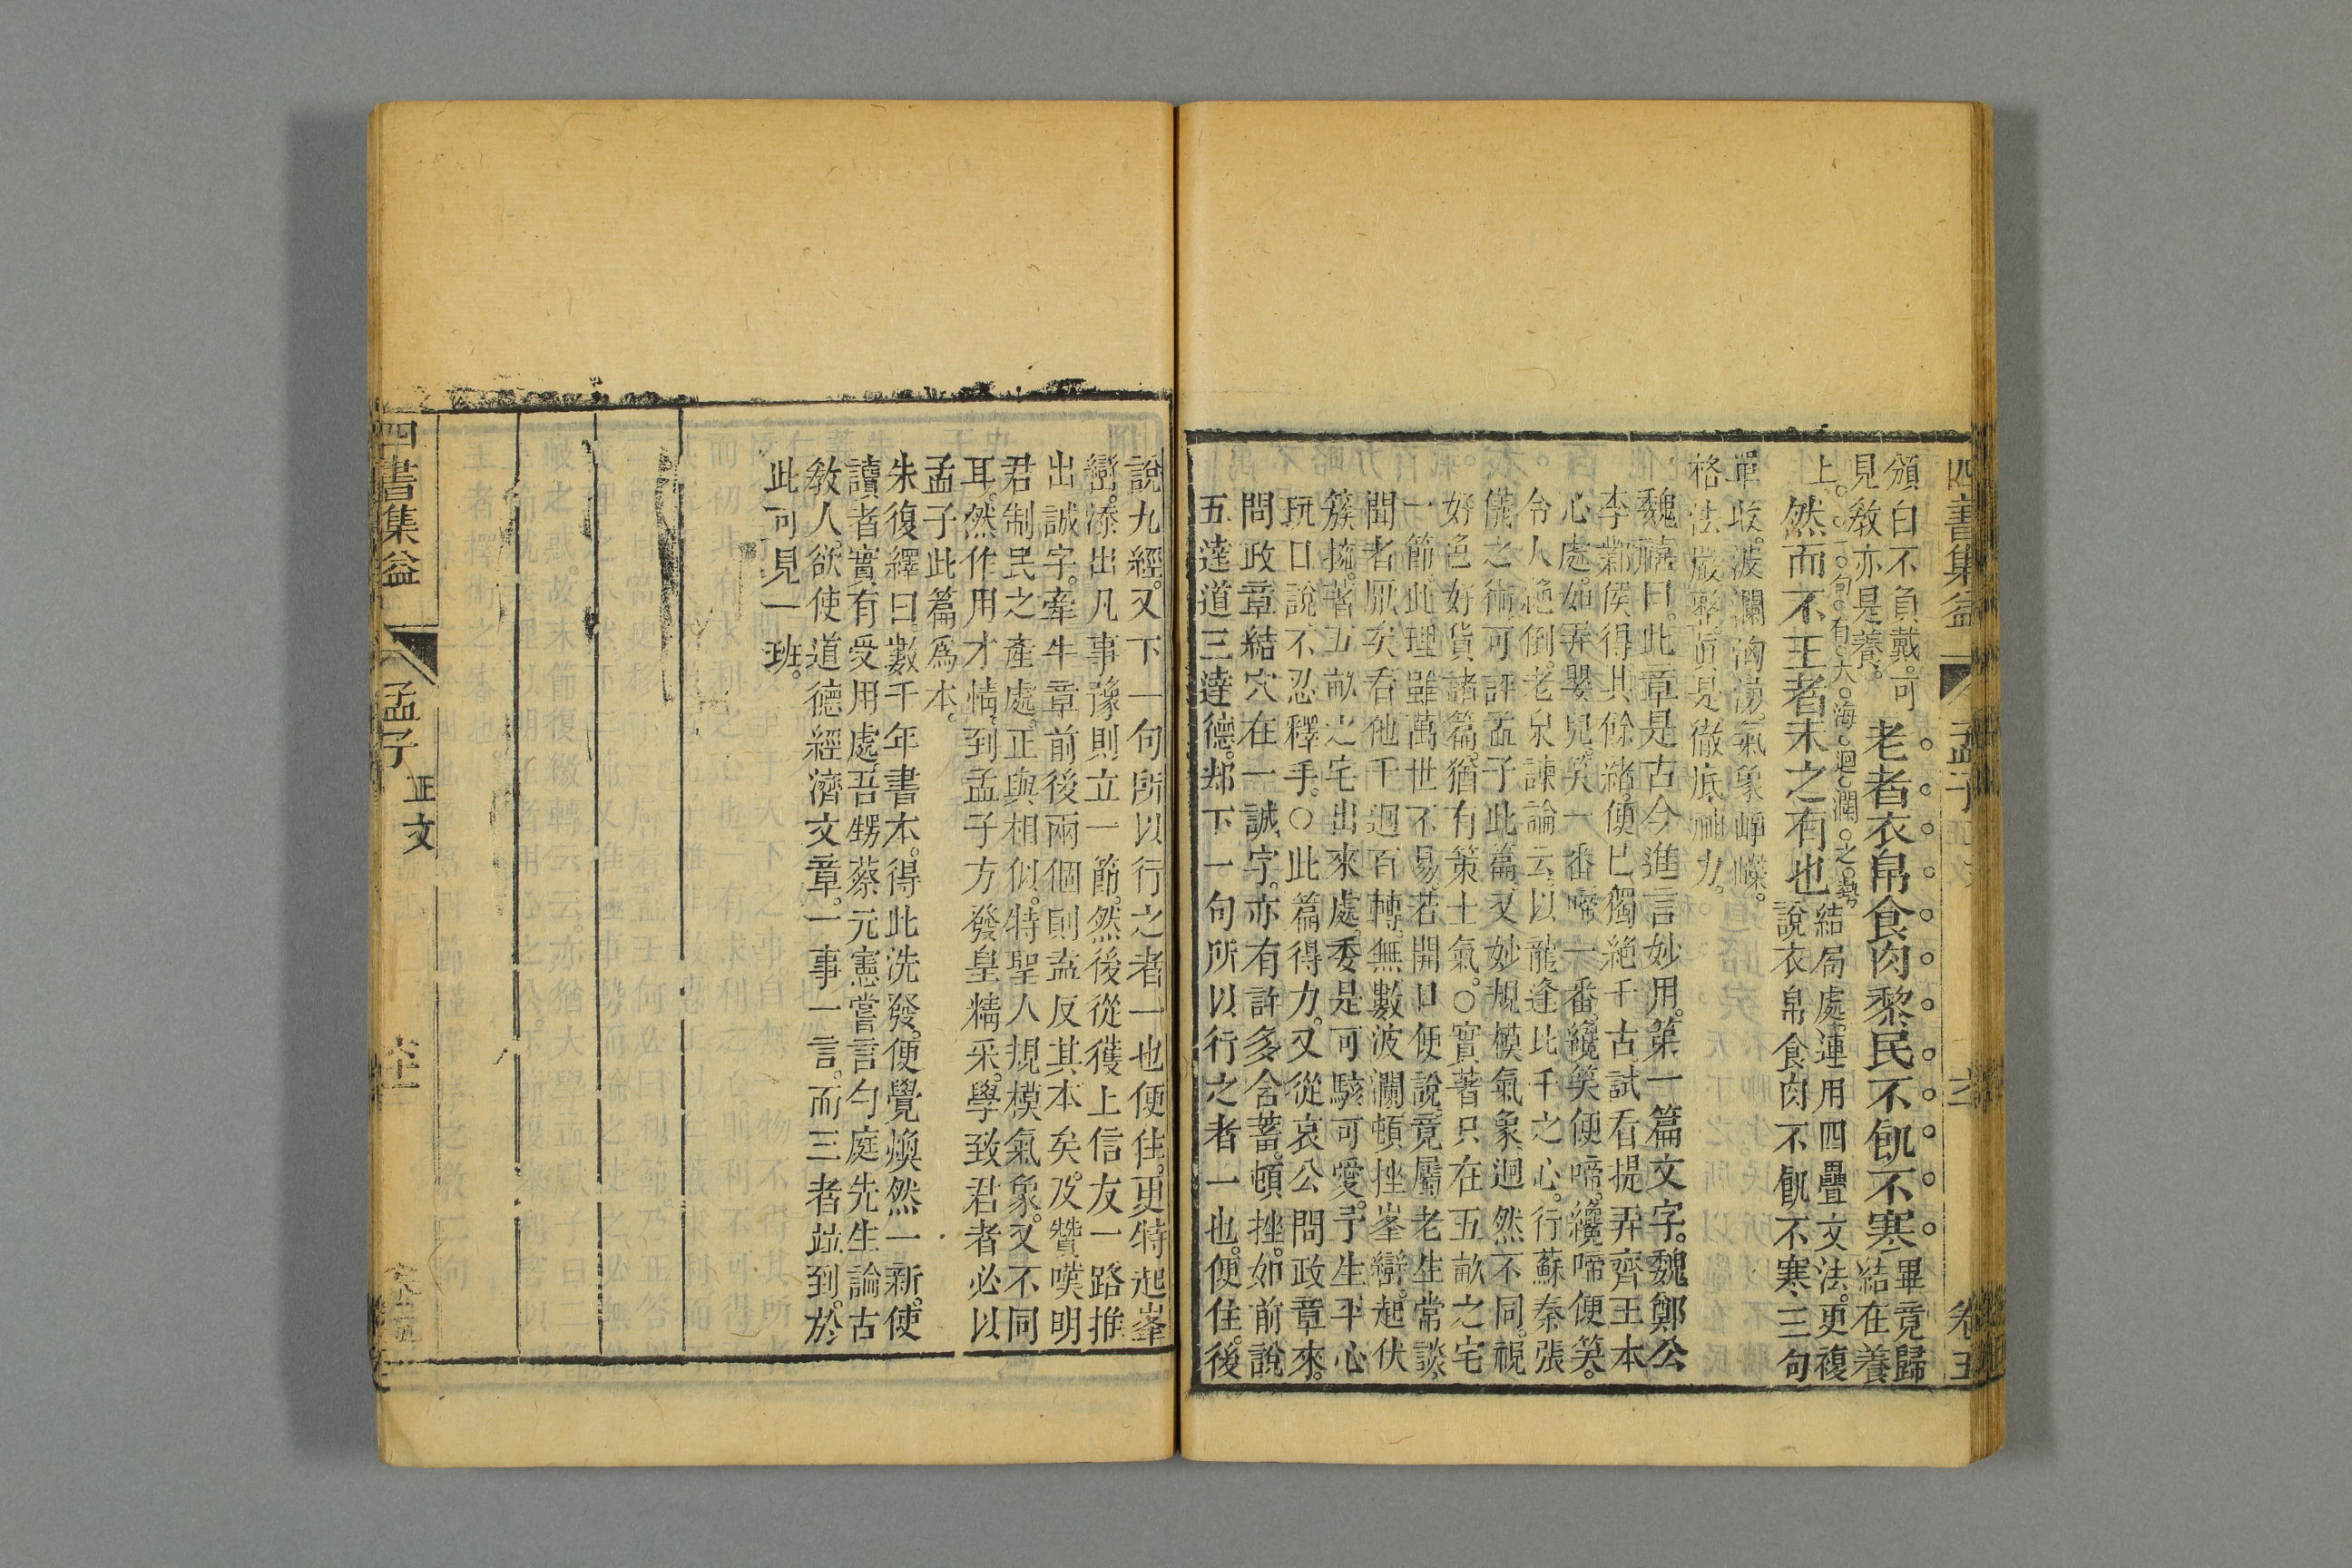 四書集益
孟子
正文
卷五
頒白不負戴可
見教亦是養
老者衣帛食肉黎民不飢不寒
畢竟歸
結在養
上一句有大海迴瀾之勢
然而不王者未之有也
結局處連用四疊文法更複
說衣帛食肉不飢不寒三句
單收波瀾洶湧氣象崢嶸
格法嚴整真是徹底神力
魏禧曰此章是古今進言妙用第一篇文字魏鄭公
李鄴侯得其餘緒便已獨絕千古試看提弄齊王本
心處如弄嬰兒笑一番啼一番纔笑便啼纔啼便笑
令人絕倒老泉諫論云以龍逢比干之心行蘇秦張
儀之術可評孟子此篇又妙規模氣象迥然不同視
好色好貨諸篇猶有策士氣○實著只在五畝之宅
一節此理雖萬世不易若開口便說竟屬老生常談
聞者厭矣看他千迴百轉無數波瀾頓挫峯巒起伏
簇擁著五畝之宅出來處委是可駭可愛予生平心
玩口說不忍釋手○此篇得力又從哀公問政章來
問政章結穴在一誠字亦有許多含蓄頓挫如前說
五達道三達德却下一句所以行之者一也便住後
說九經又下一句所以行之者一也便住更特起峯
巒添出凡事豫則立一節然後從獲上信友一路推
出誠字牽牛章前後兩個則盍反其本矣及贊嘆明
君制民之產處正與相似特聖人規模氣象又不同
耳然作用才情到孟子方發皇精采學致君者必以
孟子此篇爲本
朱復繹曰數千年書本得此洗發便覺煥然一新使
讀者實有受用處吾甥蔡元憲嘗言勺庭先生論古
教人欲使道德經濟文章一事一言而三者竝到於
此可見一班
四書集益
孟子
正文